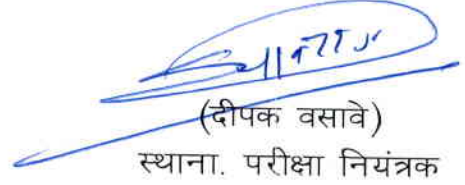 (दीपक वसावे)
स्थाना. परीक्षा नियंत्रक